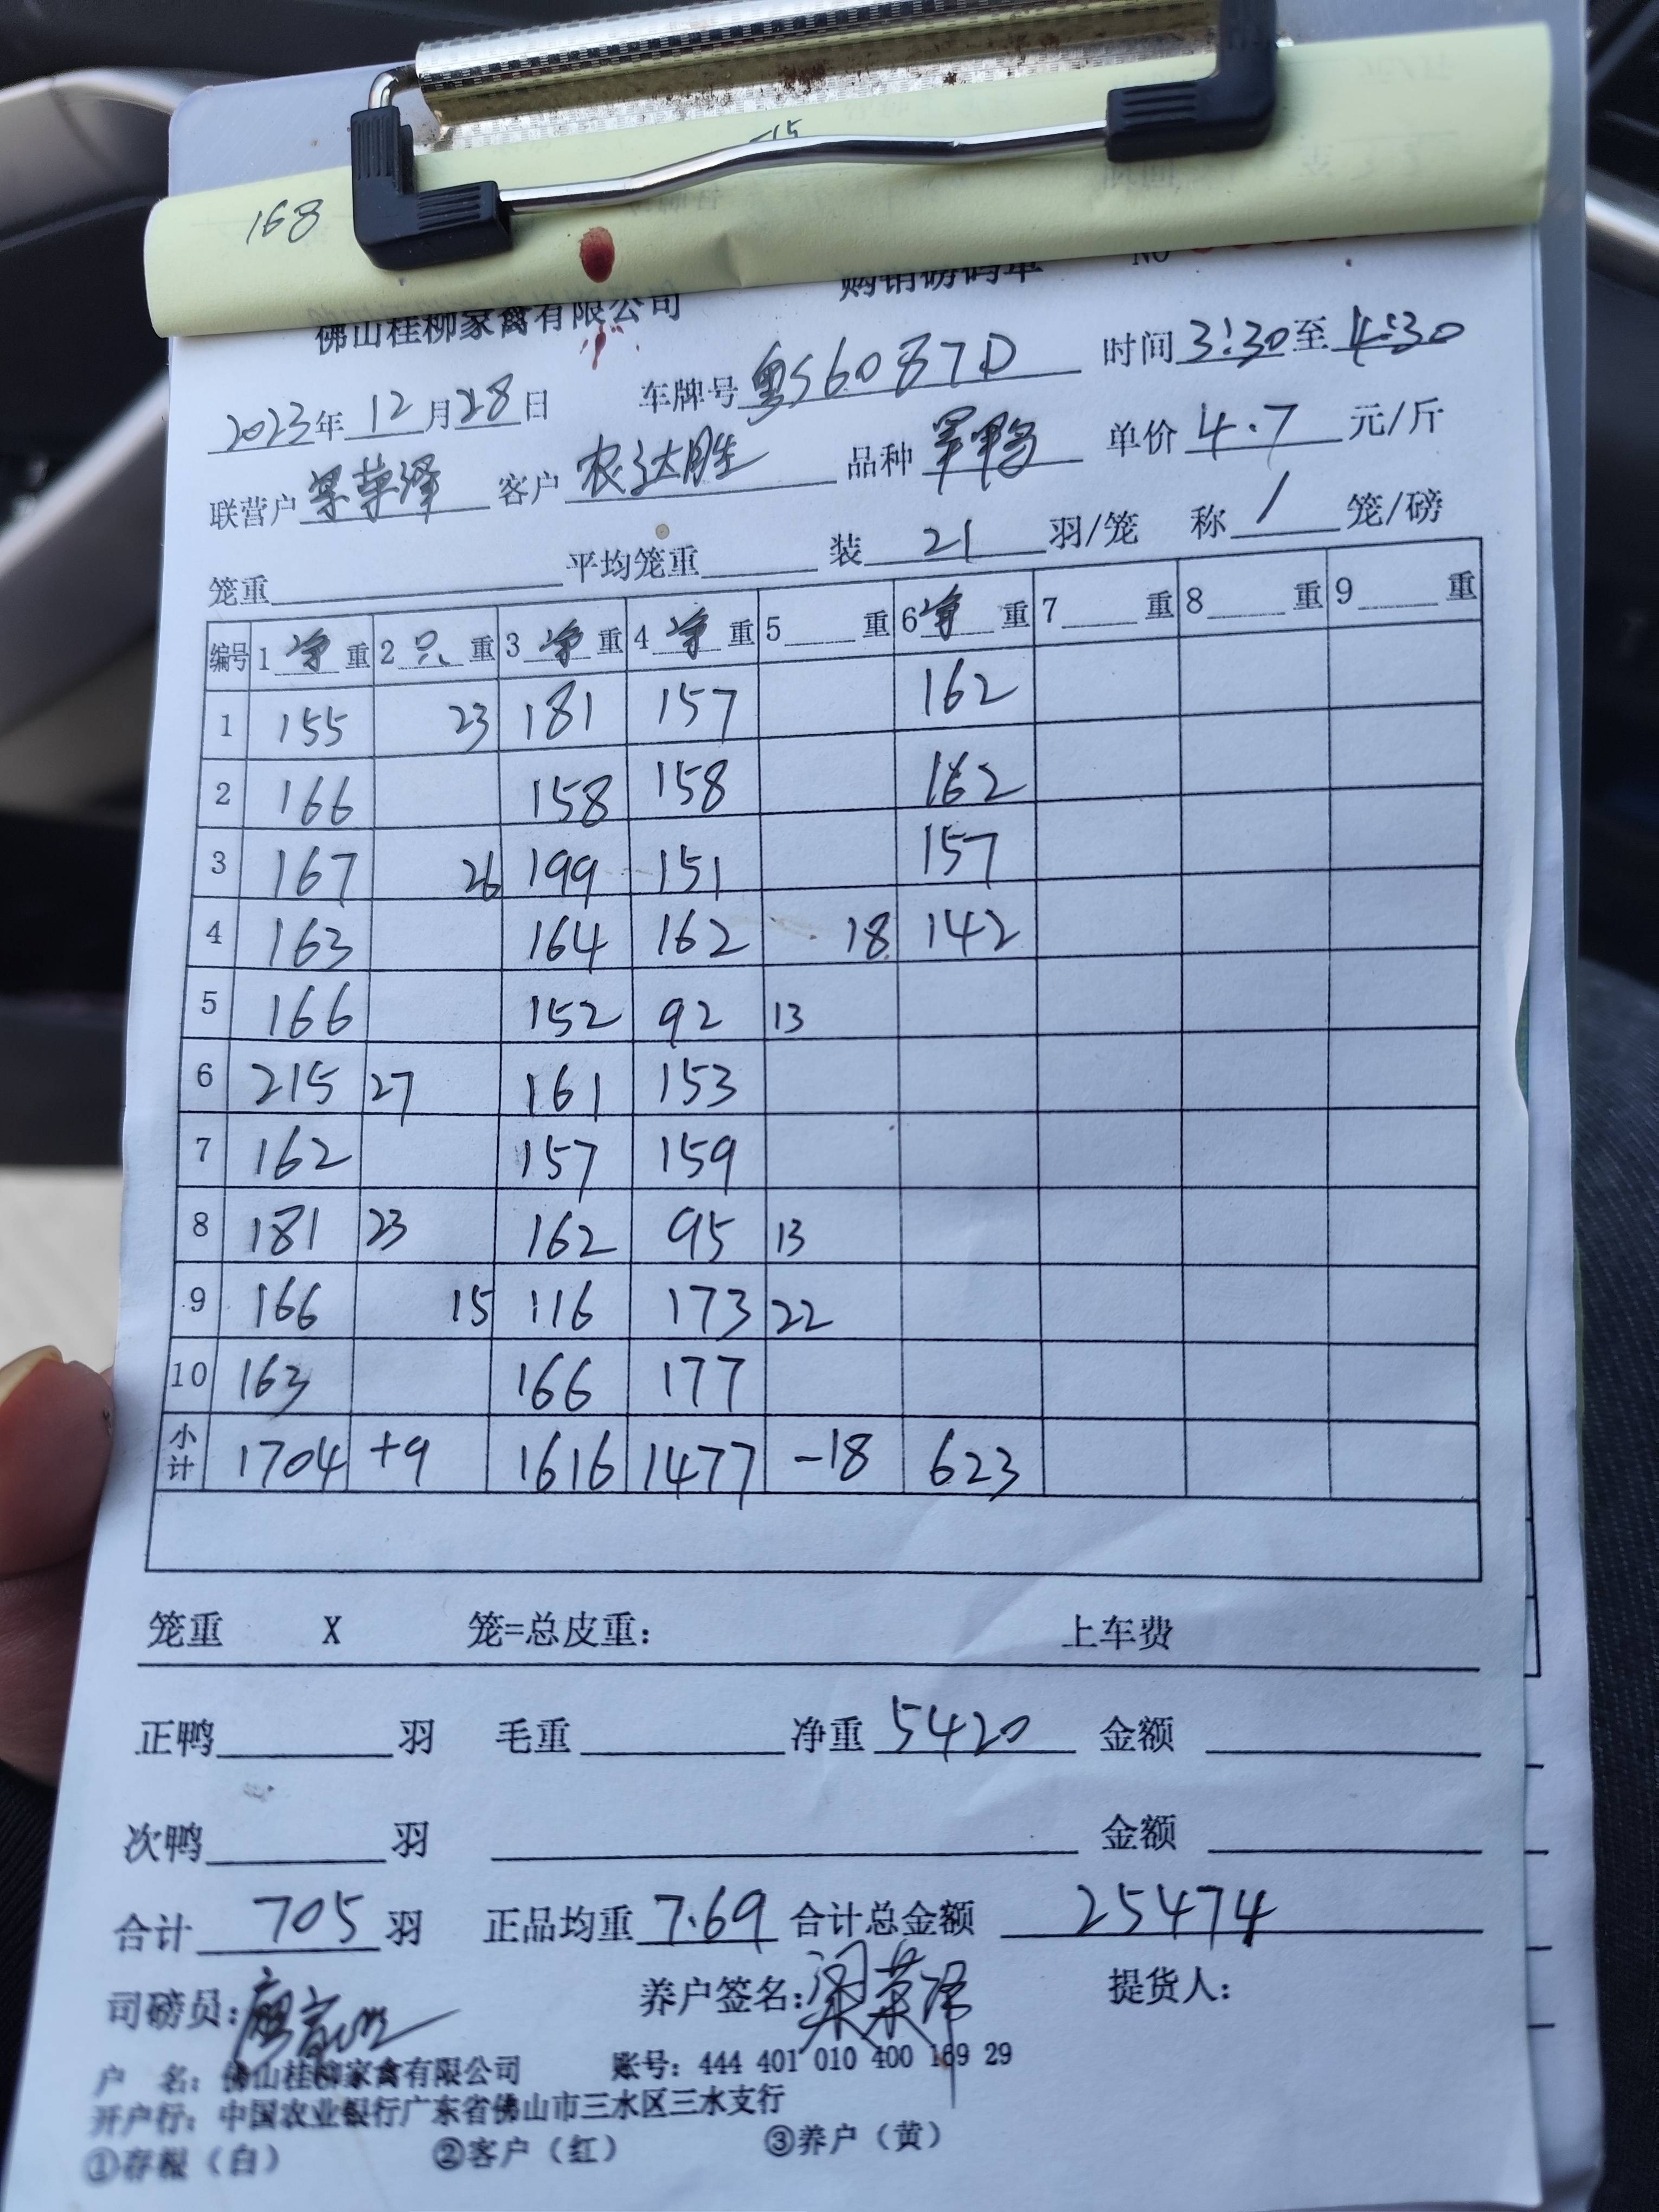 -15
168
佛山桂柳家禽有限公司 购销磅码单 NO
2023年12月28日 车牌号 粤S6087D 时间 3:30至4:30
联营户 梁荣泽 客户 农达胜 品种 单价 4.7 元/斤
笼重 平均笼重 装 21 羽/笼 称 1 笼/磅
编号 1 净 重 2 只 重 3 净 重 4 净 重 5 重 6 净 重 7 重 8 重 9 重
1 155 23 181 157 162
2 166 158 158 162
3 167 26 199 151 157
4 163 164 162 18 142
5 166 152 92 13
6 215 27 161 153
7 162 157 159
8 181 23 162 95 13
9 166 15 116 173 22
10 163 166 177
小计 1704 +9 1616 1477 -18 623
笼重 X 笼=总皮重: 上车费
正鸭 羽 毛重 净重 5420 金额
次鸭 羽 金额
合计 705 羽 正品均重 7.69 合计总金额 25474
司磅员: 养户签名: 梁荣泽 提货人:
户 名: 佛山桂柳家禽有限公司 账号: 444 401 010 400 169 29
开户行: 中国农业银行广东省佛山市三水区三水支行
①存根（白） ②客户（红） ③养户（黄）